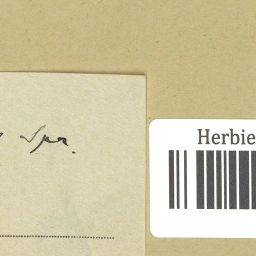 Spr.
Herbie